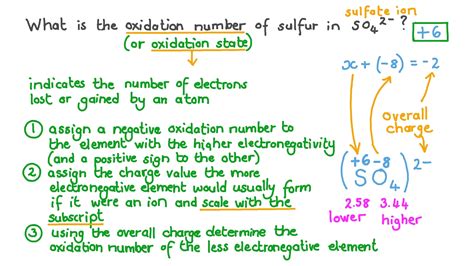 sulfate ion
What is the oxidation number of sulfur in SO₄²⁻? +6
(or oxidation state)
x + (-8) = -2
indicates the number of electrons
lost or gained by an atom
overall
charge
① assign a negative oxidation number to
the element with the higher electronegativity
(and a positive sign to the other)
② assign the charge value the more
electronegative element would usually form
if it were an ion and scale with the
subscript
③ using the overall charge determine the
oxidation number of the less electronegative element
+6 -8
(SO₄)²⁻
2.58 3.44
lower higher